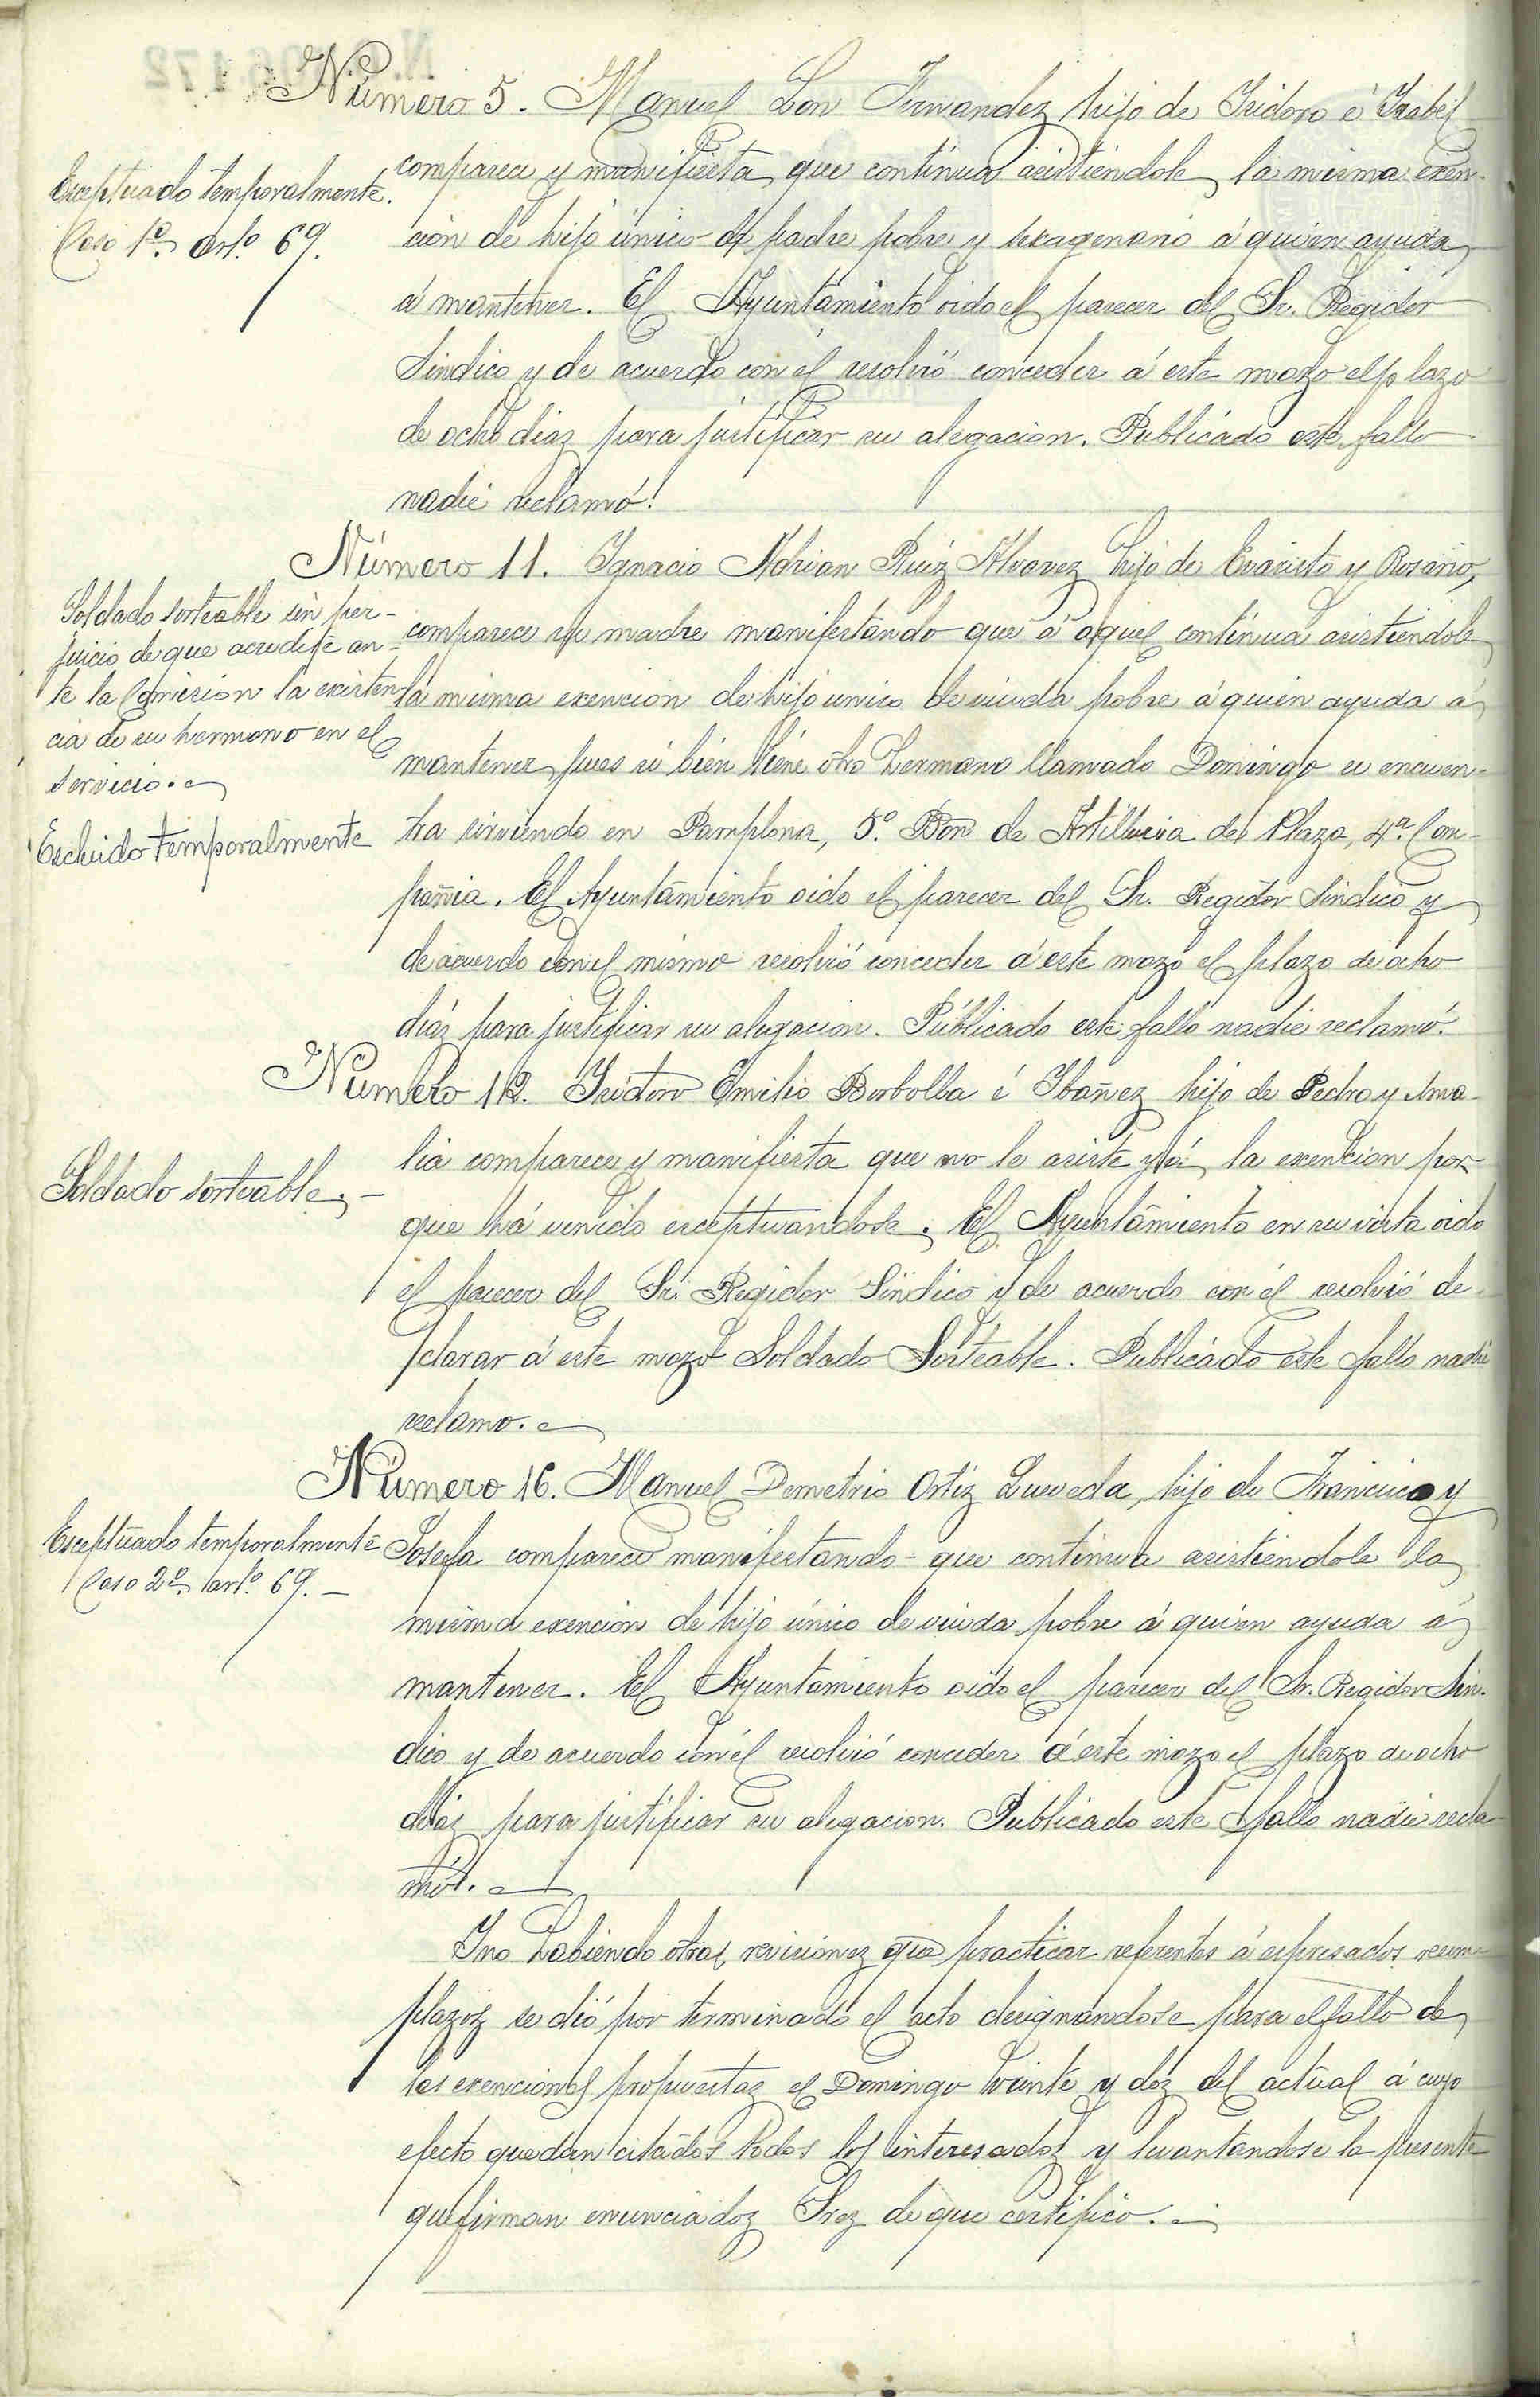 Número 5. Manuel Lon Fernandez hijo de Isidoro é Isabel
Exceptuado temporalmente.
Caso 1º artº 69.
comparece y manifiesta que continua asistiendole la misma exen-
cion de hijo único de padre pobre y sexagenario á quien ayuda
á mantener. El Ayuntamiento oido el parecer del Sr. Regidor
Sindico y de acuerdo con él resolvió conceder á este mozo el plazo
de ocho diaz para justificar su alegacion. Publicado este fallo
nadie reclamó.
Número 11. Ignacio Adrian Ruiz Alvarez hijo de Evaristo y Rosario,
Soldado sorteable sin per-
juicio de que acredite an-
te la Comision la existen-
cia de su hermano en el
servicio.
Escluido temporalmente
comparece su madre manifestando que á aquel continua asistiendole
la misma exencion de hijo unico de viuda pobre á quien ayuda á
mantener, pues si bien tiene otro hermano llamado Domingo se encuen-
tra sirviendo en Pamplona, 5º Bon de Artilleria de Plaza, 4ª. Com-
pañia. El Ayuntamiento oido el parecer del Sr. Regidor Sindico y
de acuerdo con el mismo resolvió conceder á este mozo el plazo de ocho
diaz para justificar su alegacion. Publicado este fallo nadie reclamó.
Numero 12. Isidoro Emilio Borbolla é Ibañez hijo de Pedro y Ama-
Soldado sorteable.
lia comparece y manifiesta que no le asiste yá la exencion por-
que há venido exceptuandose. El Ayuntamiento en su vista oido
el parecer del Sr. Regidor Sindico y de acuerdo con él resolvió de-
clarar á este mozo Soldado Sorteable. Publicado este fallo nadie
reclamo.
Número 16. Manuel Demetrio Ortiz, hijo de Francisco y
Esceptuado temporalmente
Caso 2º artº 69.
Josefa comparece manifestando que continua asistiendole la
misma exencion de hijo único de viuda pobre á quien ayuda á
mantener. El Ayuntamiento oido el parecer del Sr. Regidor Sin-
dico y de acuerdo con él resolvió conceder á este mozo el plazo de ocho
diaz para justificar su alegacion. Publicado este fallo nadie recla-
mó.
Y no habiendo otras revisionez que practicar referentes á espresados reem-
plazoz se dió por terminado el acto designandose para el fallo de
las exenciones propuestaz el Domingo veinte y doz del actual á cuyo
efecto quedan citados todos los interesadoz y levantandose la presente
que firman enunciadoz Srez de que certifico.